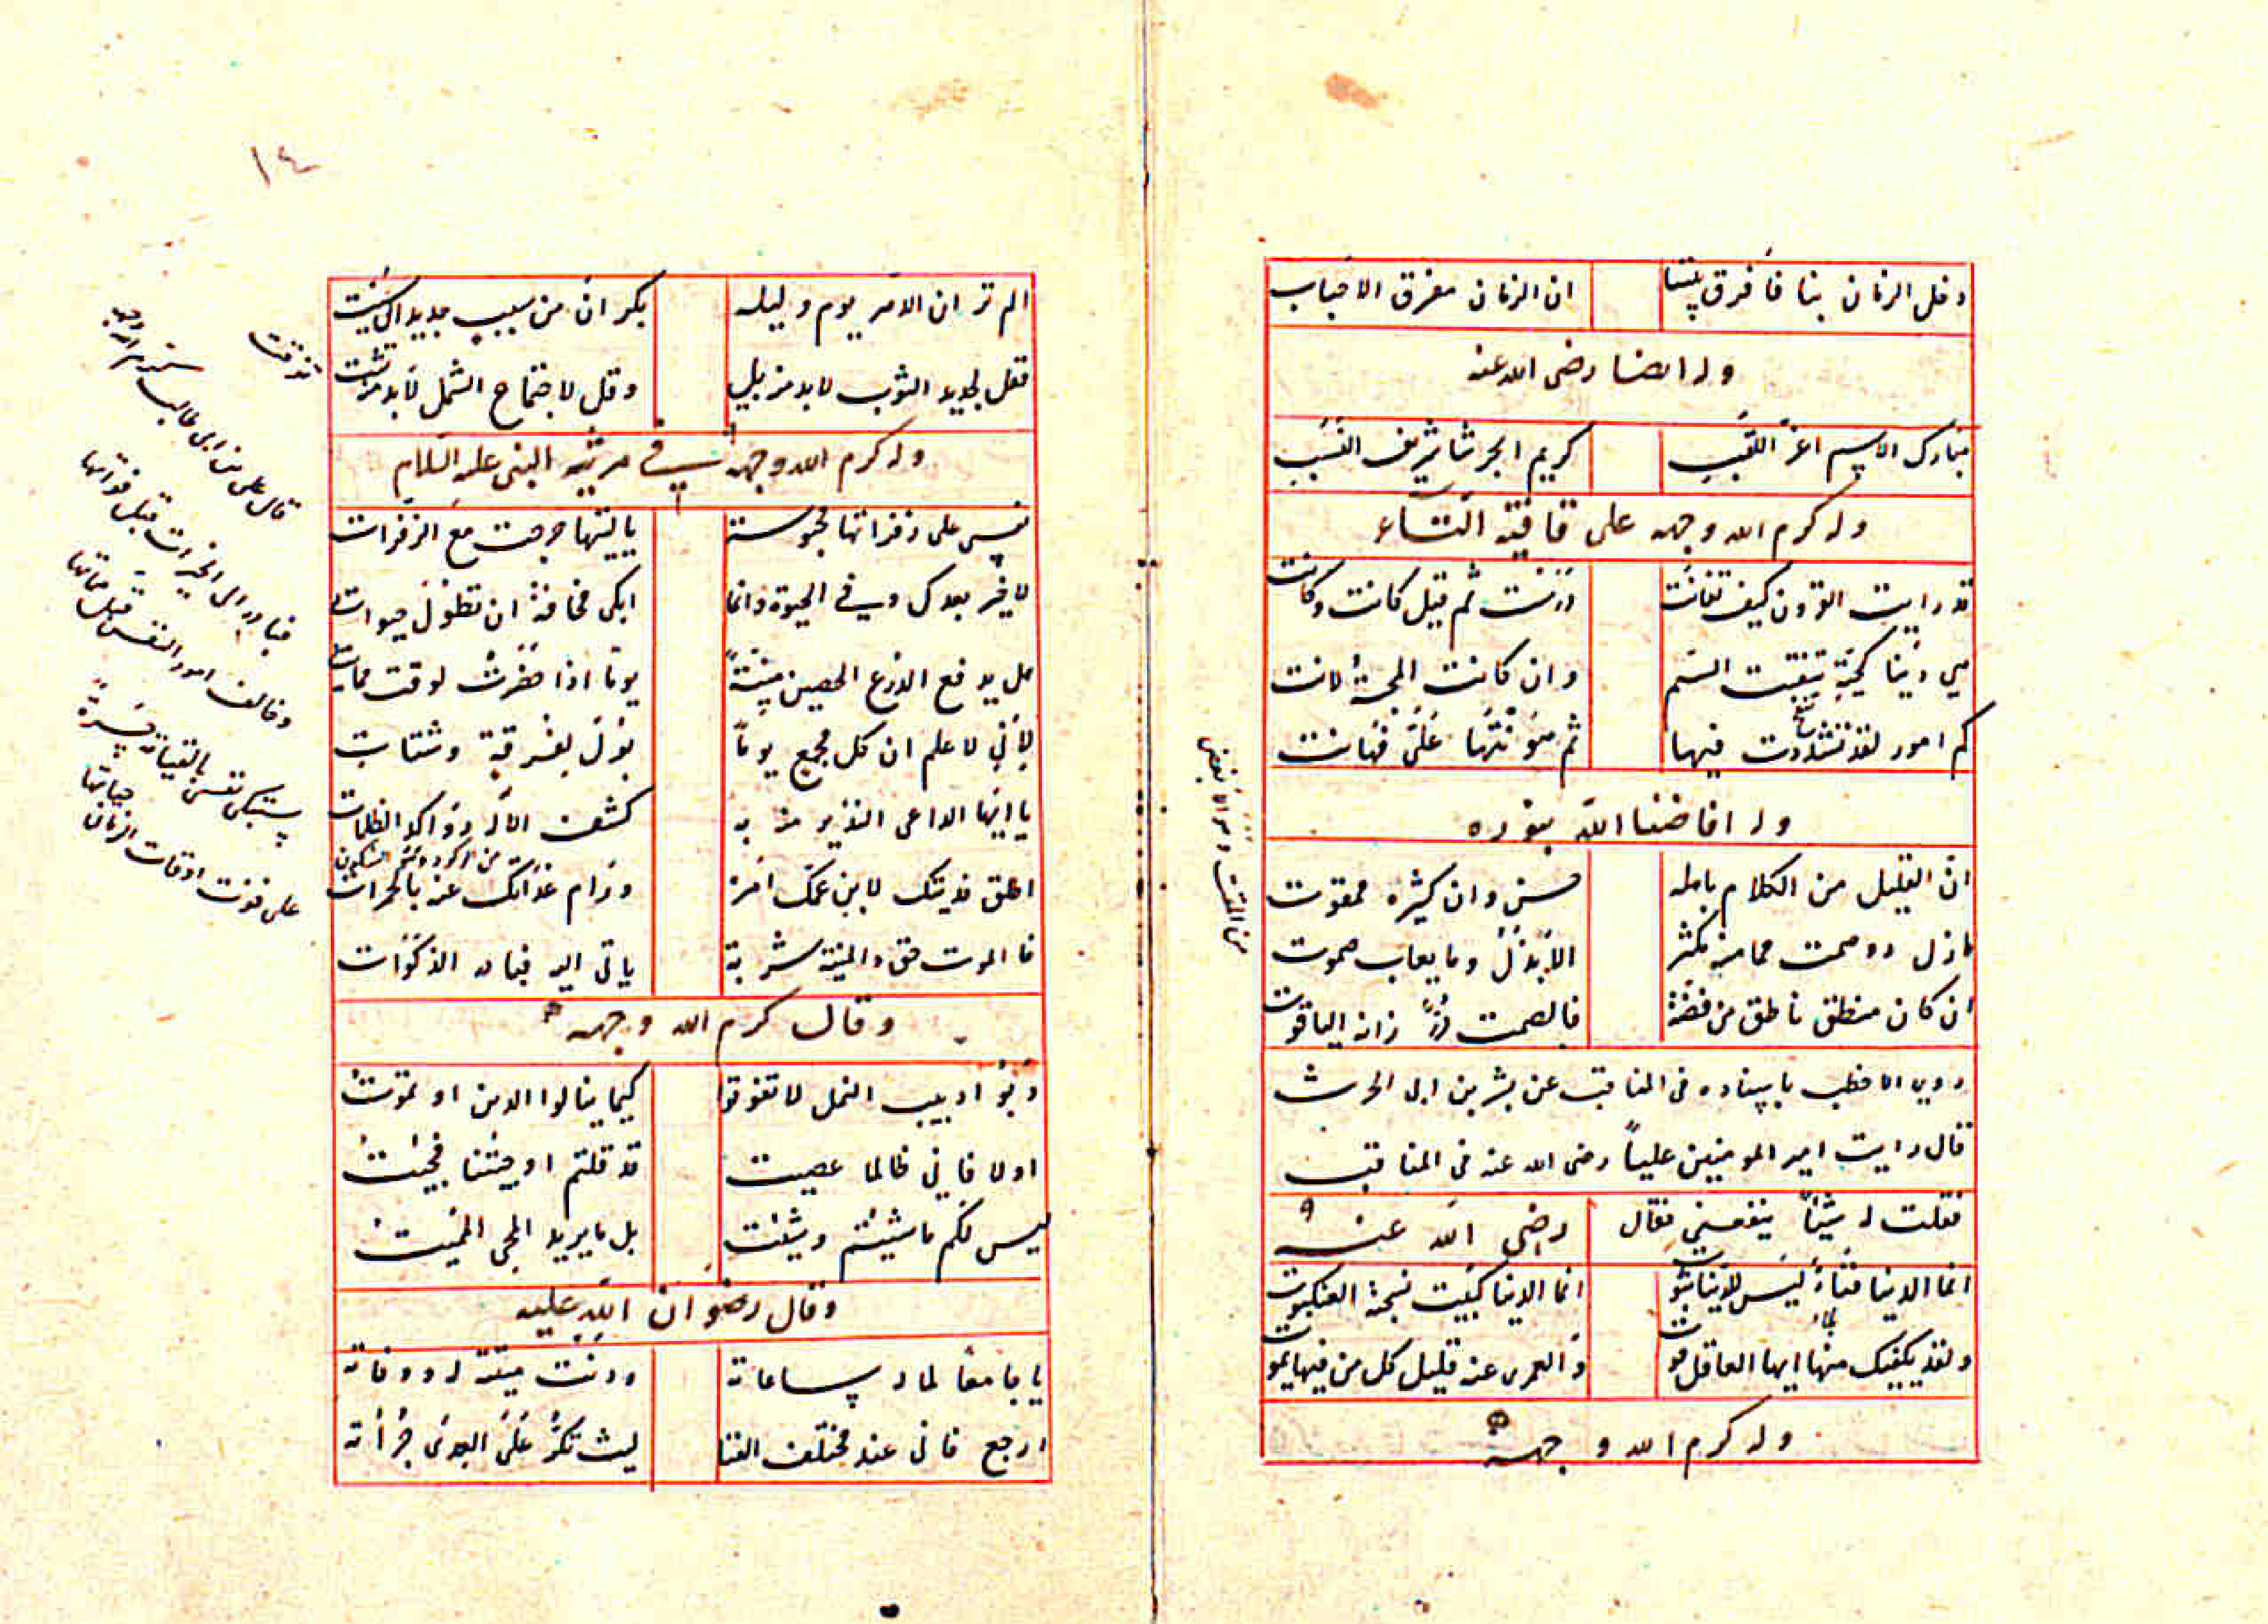 دخل الزمان بنا فافرق بيننا ان الزمان مفرق الاحباب
وله ايضا رضى الله عنه
مبارك الاسم اغر اللقب كريم الجرشا شريف النسب
وله كرم الله وجهه على قافية التاء
قد رايت القرون كيف تفانت درست ثم قيل كانت وكانت
هي دنيا كحية تنفث السم وان كانت المجسة لانت
كم امور لقد تشددت فيها ثم هونتها على فهانت
وله افاضنا الله بنوره
ان القليل من الكلام باهله حسن وان كثيره ممقوت
ما زل ذو صمت وما من مكثر الا يزل وما يعاب صموت
ان كان منطق ناطق من فضة فالصمت در زانه الياقوت
من المقت وهو البغض
روي الاخطب باسناده فى المناقب عن بشر بن ابى الحرث
قال رايت امير المومنين علياً رضى الله عنه فى المناقب
فقلت له شيئا ينفعنى فقال رضى الله عنه
انما الدنيا فناء ليس للدنيا ثبوت انما الدنيا كبيت نسجه العنكبوت
ولقد يكفيك منها ايها العاقل قوت ولعمرى عن قليل كل من فيها يموت
وله كرم الله وجهه
١٤
الم تر ان الدهر يوم وليلة يكران من سبت جديد الى سبت
فقل لجديد الثوب لا بد من بلى وقل لاجتماع الشمل لا بد من شت
وله كرم الله وجهه فى مرثية النبى عليه السلام
نفسى على زفراتها محبوسة ياليتها خرجت مع الزفرات
لا خير بعدك فى الحيوة وانما ابكى مخافة ان تطول حيوات
هل يدفع الدرع الحصين منية يوما اذا حضرت لوقت ممات
لانى لاعلم ان كل مجمع يوماً يؤل بفرقة وشتات
يا ايها الداعى النذير ومن به كشف الاله رواكد الظلمات
من الركود وهو السكون
اطلق فديتك لابن عمك امره ورام عداتك عنه بالجمرات
فالموت حق والمنية شربة ياتى اليه فبادر الذكوات
وقال كرم الله وجهه
دبوا دبيب النمل لا تفوتوا كيما ينالوا الدين او تموت
اولا فانى طالما عصيت قد قلتم او جئتنا فجيت
ليس لكم ما شئتم وشئت بل ما يريد المحى المميت
وقال رضوان الله عليه
ودنت منيته له ووفاته
ارجع فانى عند مختلف القنا ليث تكر على العدى جرأته
قال على بن ابى طالب
فبادر الى الخيرات قبل فواتها
وخالف امور النفس قبل مماتها
ستبكى نفس بالقيامة حسرة
على فوت اوقات الزمان حياتها